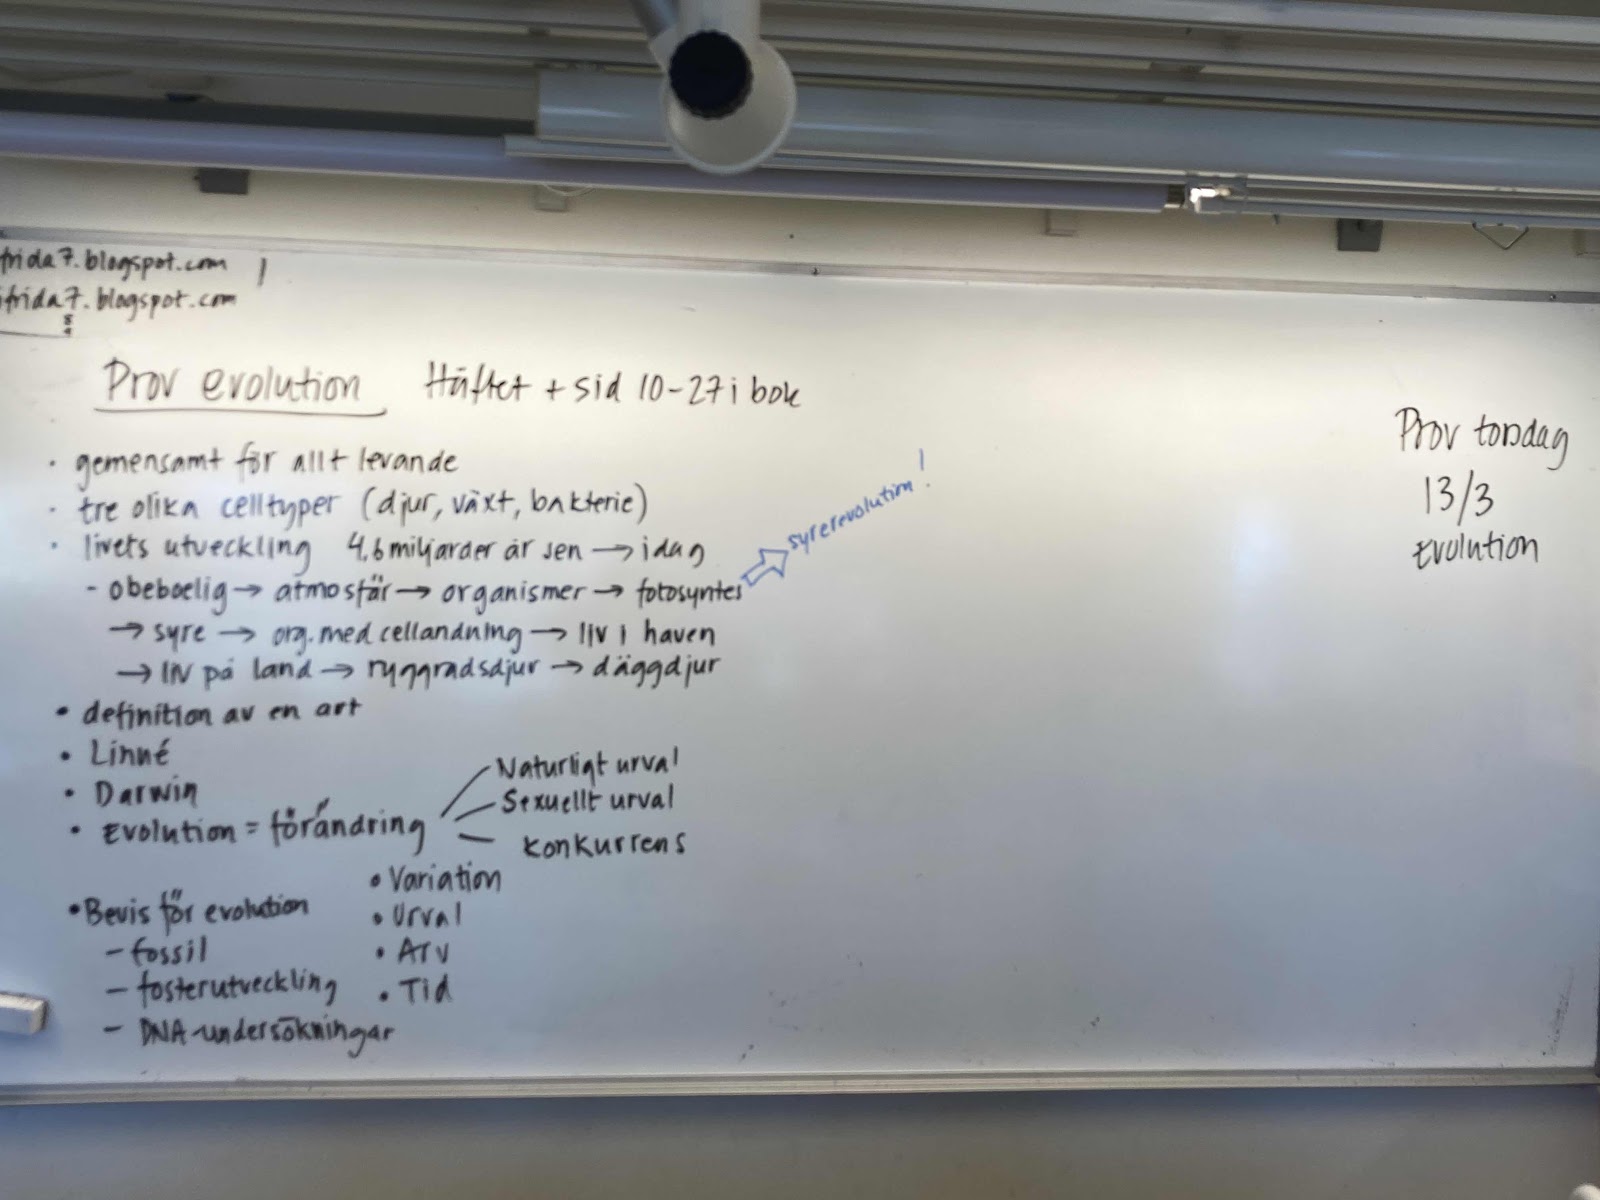 frida7.blogspot.com
frida7.blogspot.com
8
9
Prov evolution Häftet + sid 10-27 i bok
Prov torsdag
13/3
Evolution
· gemensamt för allt levande
· tre olika celltyper (djur, växt, bakterie)
· livets utveckling 4,6 miljarder år sen → idag
- obeboelig → atmosfär → organismer → fotosyntes ⇒ syrerevolution!
→ syre → org. med cellandning → liv i haven
→ liv på land → ryggradsdjur → däggdjur
• definition av en art
• Linné
• Darwin
• Evolution = förändring
Naturligt urval
Sexuellt urval
Konkurrens
• Variation
• Urval
• Arv
• Tid
• Bevis för evolution
- fossil
- fosterutveckling
- DNA-undersökningar